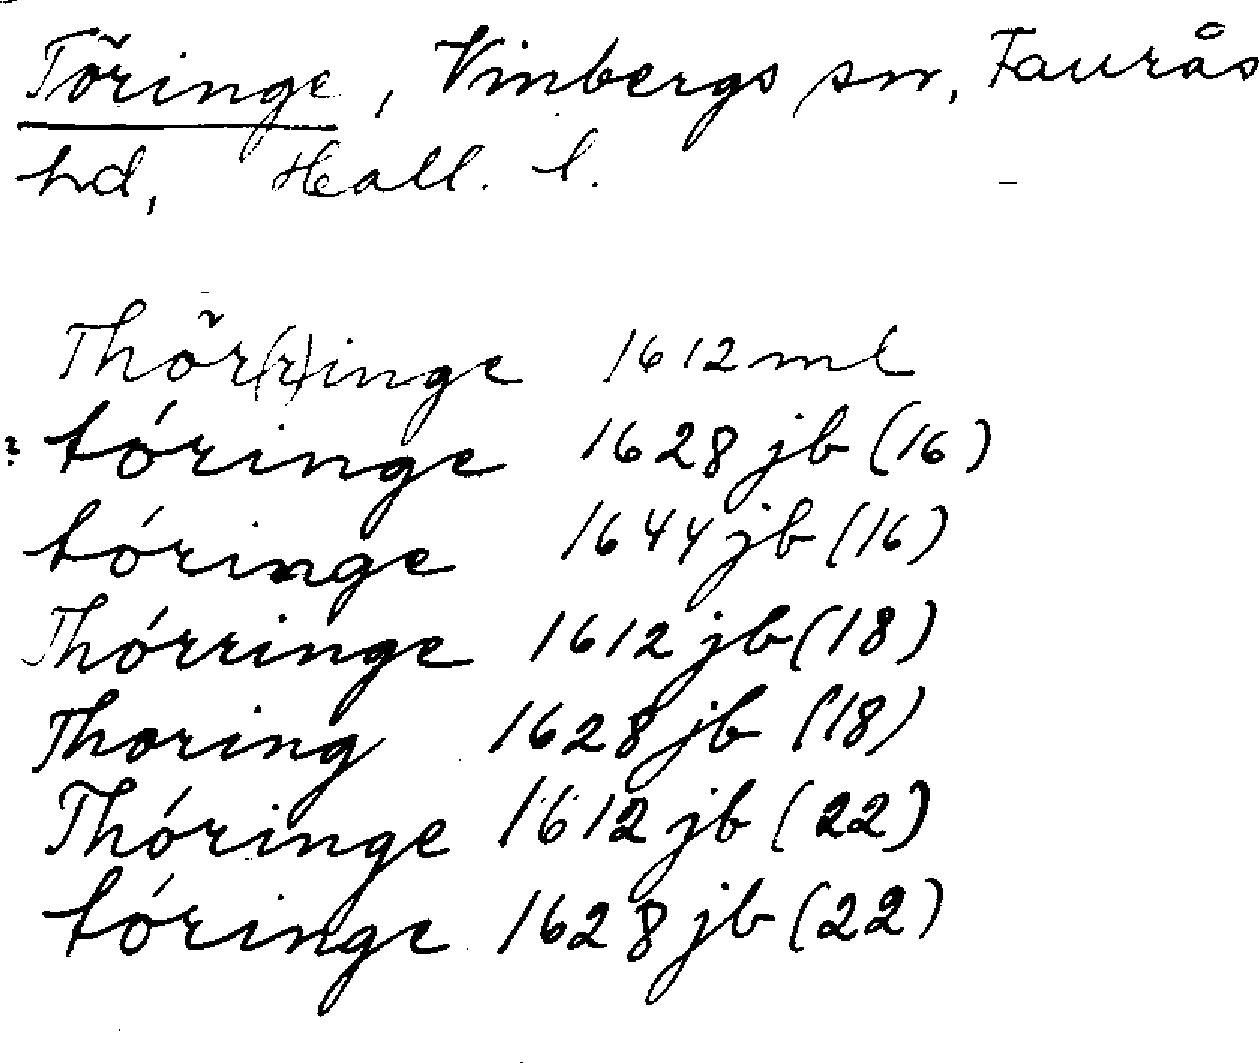 Töringe, Vinbergs sn, Faurås
hd, Hall. l.
Thör(r)inge 1612 ml
? tóringe 1628 jb (16)
tóringe 1644 jb (16)
Thórringe 1612 jb (18)
Thoring 1628 jb (18)
Thóringe 1612 jb (22)
tóringe 1628 jb (22)